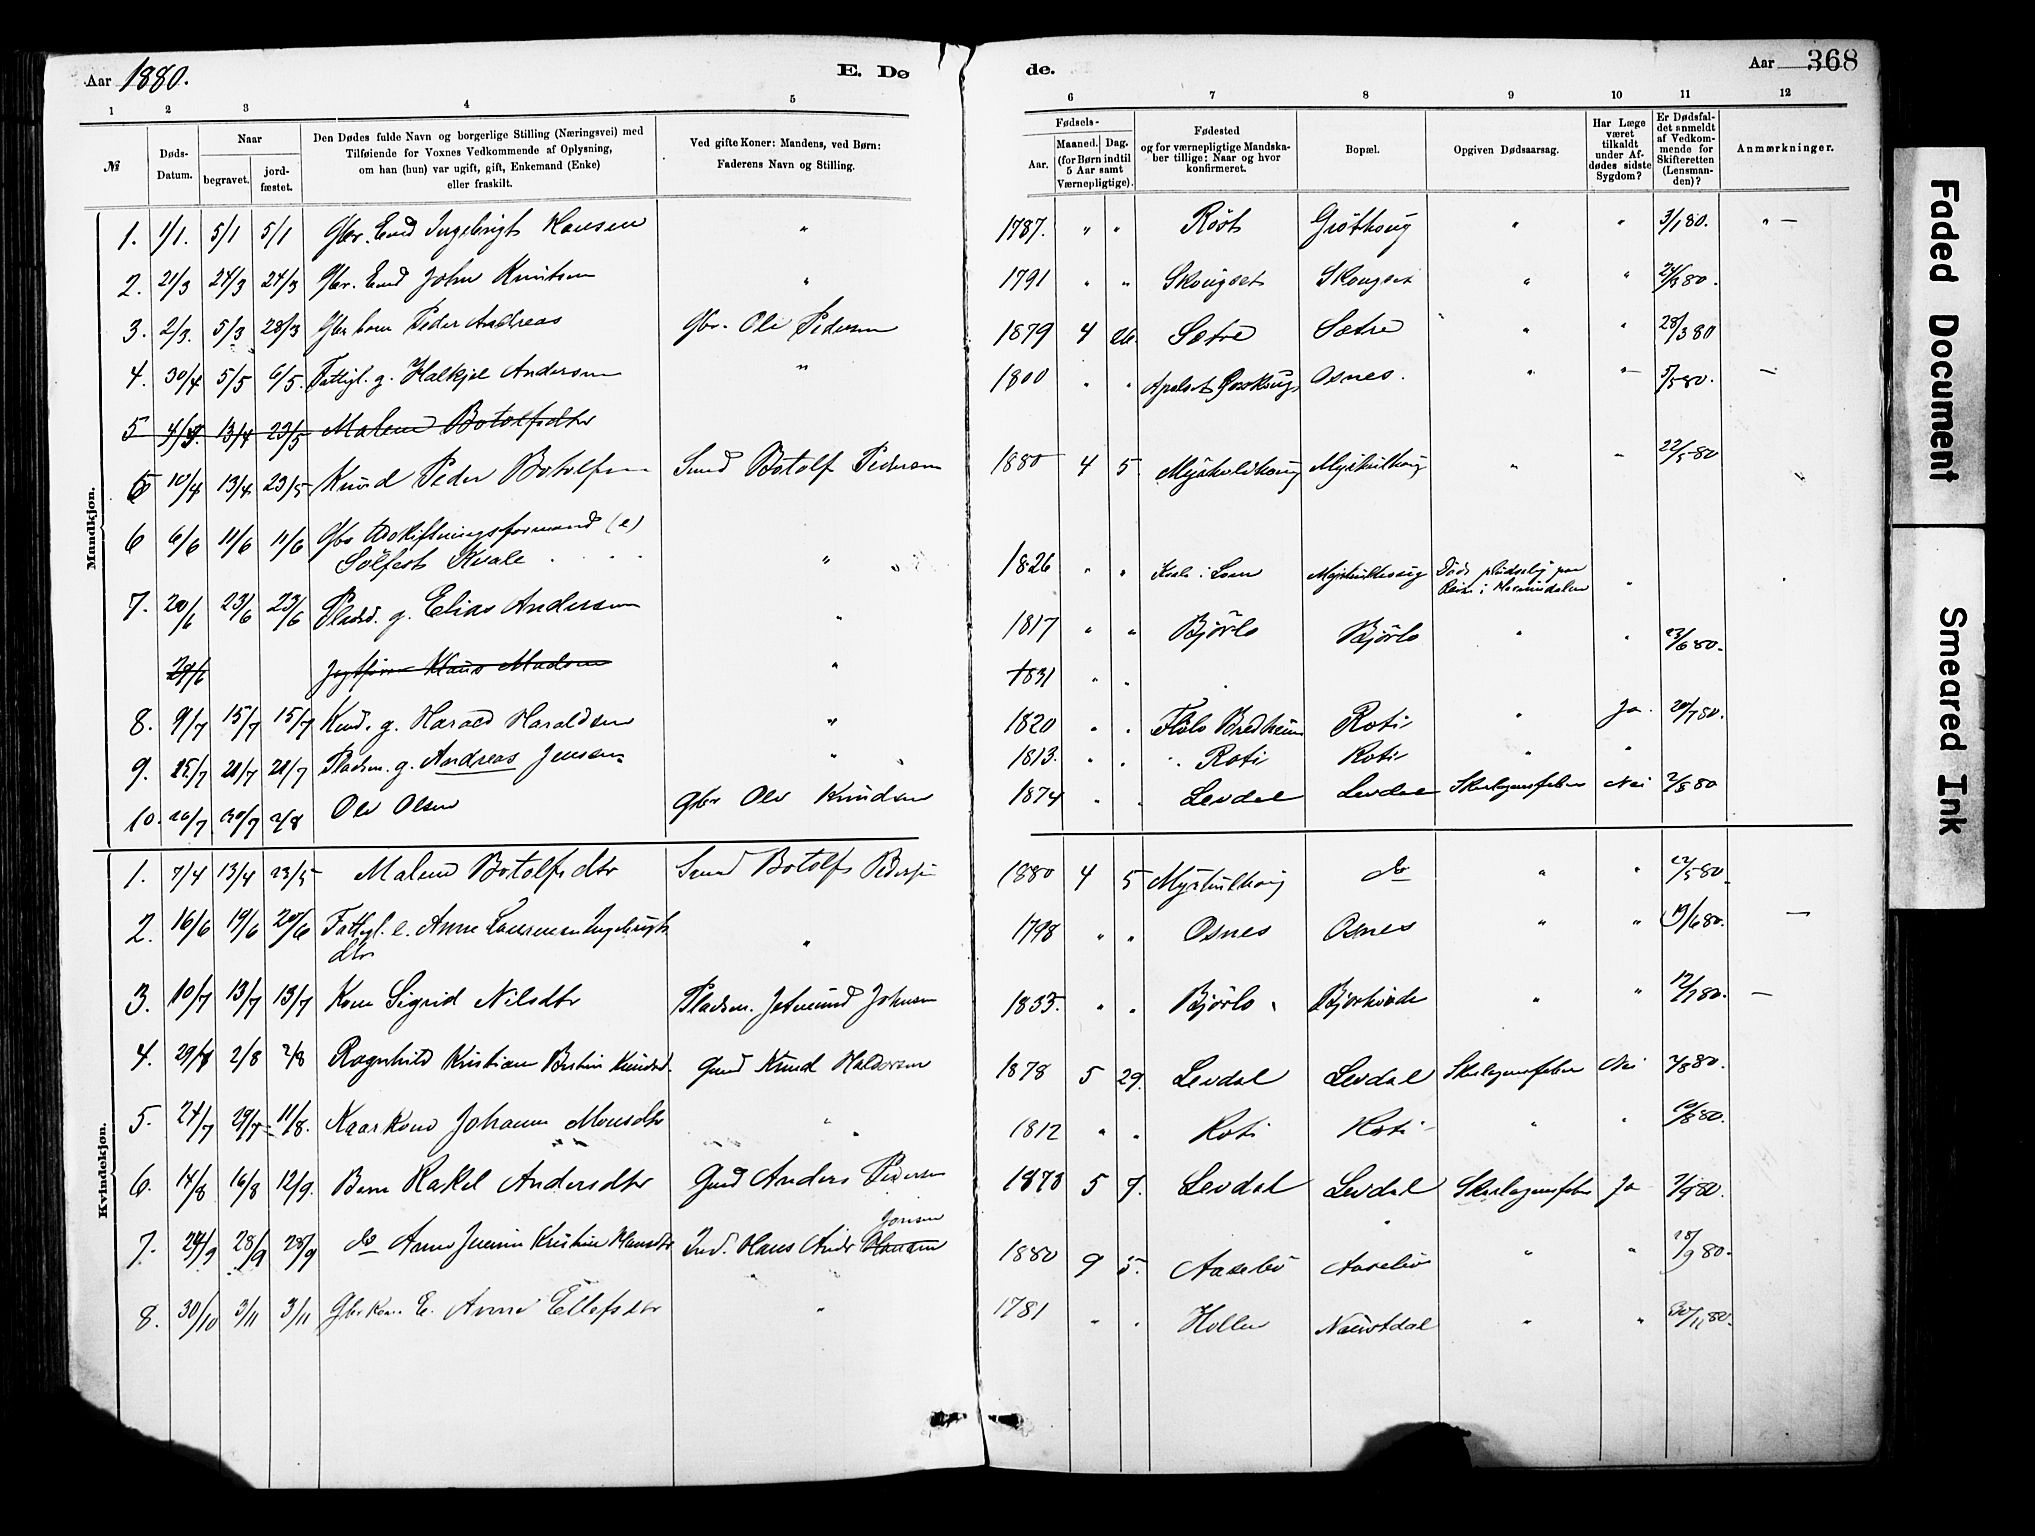 Aar 1880.
E. Dø
de.
Aar 368
1 2 3 4 5 6 7 8 9 10 11 12
№
Døds-
Datum.
Naar
begravet.
jord-
fæstet.
Den Dødes fulde Navn og borgerlige Stilling (Næringsvei) med
Tilføiende for Voxnes Vedkommende af Oplysning,
om han (hun) var ugift, gift, Enkemand (Enke)
eller fraskilt.
Ved gifte Koner: Mandens, ved Børn:
Faderens Navn og Stilling.
Fødsels-
Aar.
Maaned.
Dag.
(for Børn indtil
5 Aar samt
Værnepligtige).
Fødested
og for værnepligtige Mandska-
ber tillige: Naar og hvor
konfirmeret.
Bopæl.
Opgiven Dødsaarsag.
Har Læge
været
tilkaldt
under Af-
dødes sidste
Sygdom?
Er Dødsfal-
det anmeldt
af Vedkom-
mende for
Skifteretten
(Lensman-
den)?
Anmærkninger.
Mandkjøn.
1. 1/1. 5/1 5/1 Gbr. Ingebrigt Hansen " 1787. " " Røst " " 3/1 80. " —
2. 21/3 24/3 24/3 Gbr. John Knutsen " 1791 " " Skougset Skougset " "
3. 2/3. 5/3 28/3 Gbr barn Peder Andreas Gbr. Ole Pedersen 1879 4 26. Sætre Sætre " " 28/3 80
4. 30/4 5/5 6/5. Fattigl. g. Andersen " 1800 " " Osnes. " " 5/5 80. —
5 13/4 23/5 Malene Botolfsdtr
5 10/4 13/4 23/5 Knud Peder Botolfsen Botolf Pedersen 1880 4 5. " " 22/5 80
6 6/6 11/6 11/6 Gbr Udskiftningsformand (e)
Sølfest Kvale " 1826 " " i Lom Døde pludselig paa
Reise i "
7. 20/6 23/6 23/6 Pladsd. g. Elias Andersen " 1817 " " Bjørlo Bjørlo " " 23/6 80.
29/6 Klaus Madsen " 1831 " "
8. 9/7 15/7 15/7 g. Harald Haraldsen " 1820 " " Bredheim Roti " Ja.
9. 15/7 21/7 21/7 Pladsm. g. Andreas Jensen " 1813. " " Roti Roti " "
10. 26/7 30/7 2/8 Ole Olsen Gbr Ole Knudsen 1874 " " Levdal Levdal Skarlagensfeber Nei 2/8 80
Kvindekjøn.
1. 7/4 13/4 23/5 Malene Botolfsdtr Botolf Pedersen 1880 4 5 do " " 22/5 80.
2. 16/6 19/6 20/6 Fattigl. e. Anne
dtr " 1798 " " Osnes Osnes " " 19/6 80. —
3. 10/7 13/7 13/7 Kone Sigrid Nilsdtr Pladsm. Jetmund Johnsen 1833. " " Bjørlo " " 12/7 80. —
4. 29/7 2/8 2/8 Ragnhild Kristiane Knudsd. Gmd Knud 1878 5 29. Levdal Levdal Skarlagensfeber Nei 2/8 80.
5. 24/7 29/7 11/8. Kaarkone Johanne Monsdtr " 1812 " " Roti Roti " "
6. 14/8 16/8 12/9. Barn Rakel Andersdtr Gmd Anders Pedersen 1878 5 7. Levdal Levdal Skarlagensfeber Ja
7. 24/9 28/9 28/9 do Anne Kristine Hansdtr Ind. Hans Andr. Hansen Jonsen 1880 9 5. Aasebø Aasebø " " 28/9 80.
8. 30/10 3/11 3/11 Gbrkone E. Anne Ellefsdtr " 1781 " " Holle Naustdal " "
Faded Document
Smeared Ink